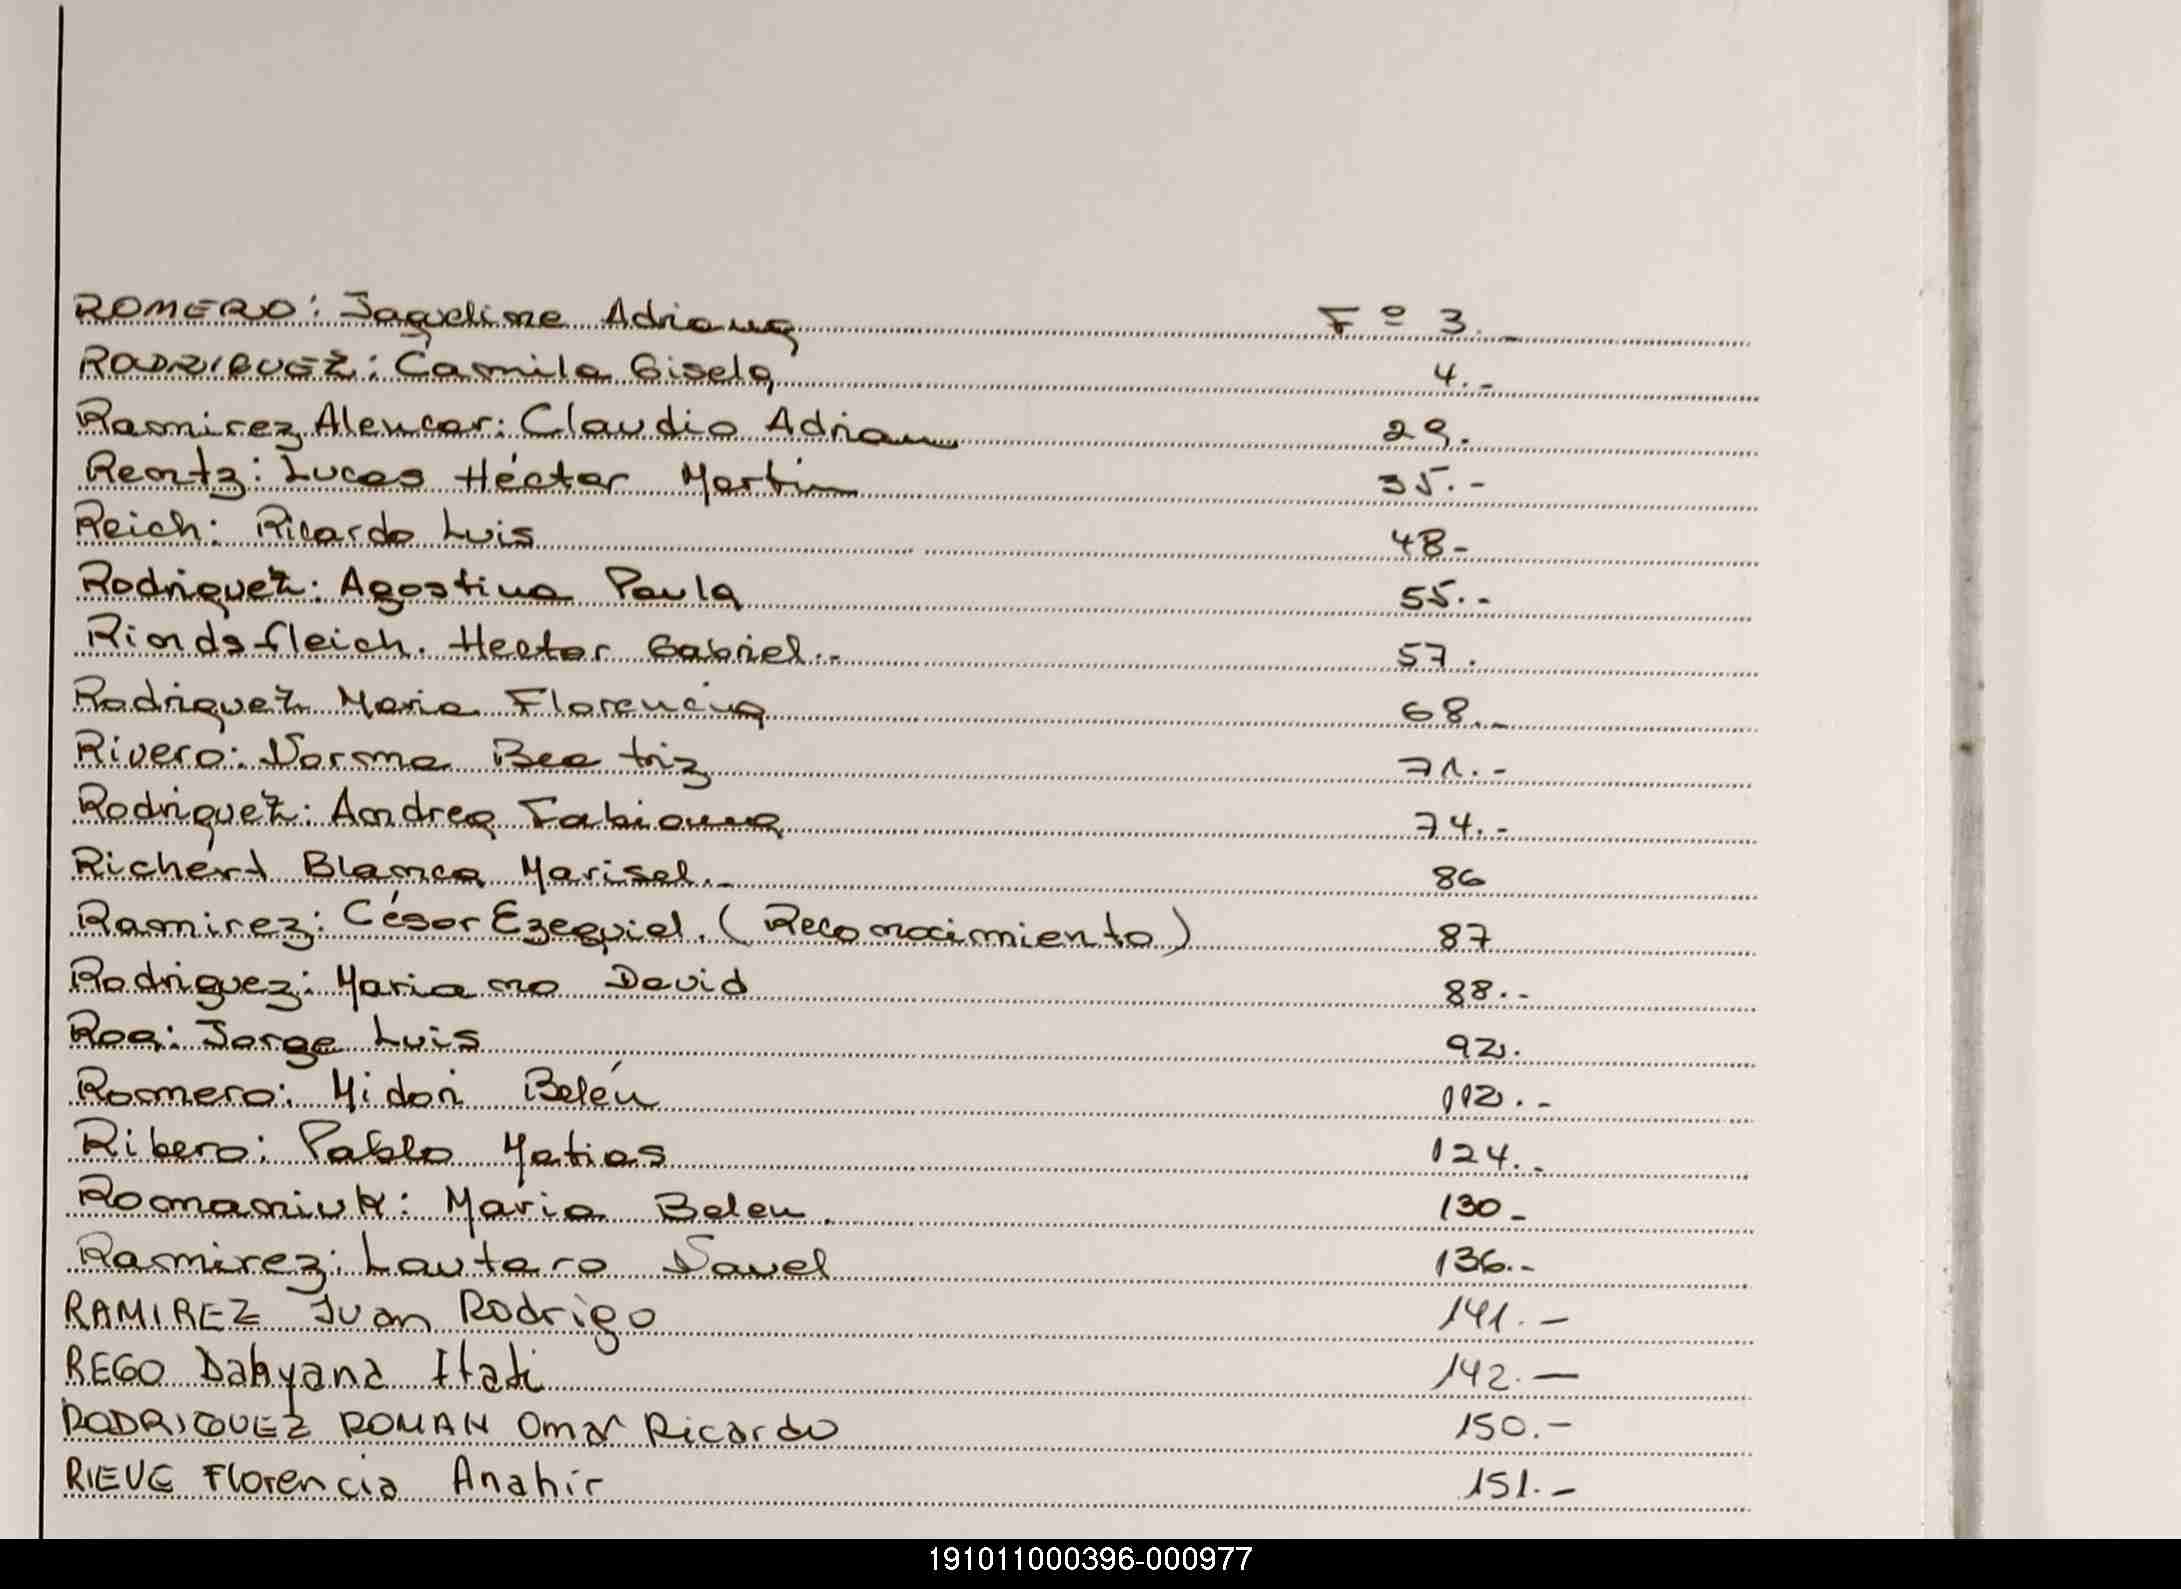 ROMERO: Jaqueline Adriana Fº 3.-
RODRIGUEZ: Camila Gisela 4.-
Ramirez Alencar: Claudio Adrian 29.
Rentz: Lucas Héctor Martin 35.-
Reich: Ricardo Luis 48-
Rodriguez: Agostina Paula 55.-
Rindsfleich. Hector Gabriel.- 57.
Rodriguez Maria Florencia 68.-
Rivero: Norma Beatriz 71.-
Rodriguez: Andrea Fabiana 74.-
Richert Blanca Marisel.- 86
Ramirez: César Ezequiel. (Reconocimiento) 87
Rodriguez: Mariano David 88.-
Roa: Jorge Luis 92.
Romero: Midori Belén 112.-
Ribero: Pablo Matias 124.-
Romaniuk: Maria Belen. 130-
Ramirez: Lautaro Nauel 136.-
RAMIREZ Juan Rodrigo 141.-
REGO Dahyana Itati 142.-
RODRIGUEZ ROMAN Omar Ricardo 150.-
RIEVE Florencia Anahir 151.-
191011000396-000977